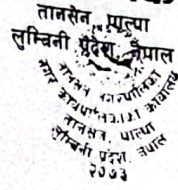 तानसेन, पाल्पा
लुम्बिनी प्रदेश, नेपाल
तानसेन नगरपालिका
नगर कार्यपालिकाको कार्यालय
तानसेन, पाल्पा
लुम्बिनी प्रदेश, नेपाल
२०७३